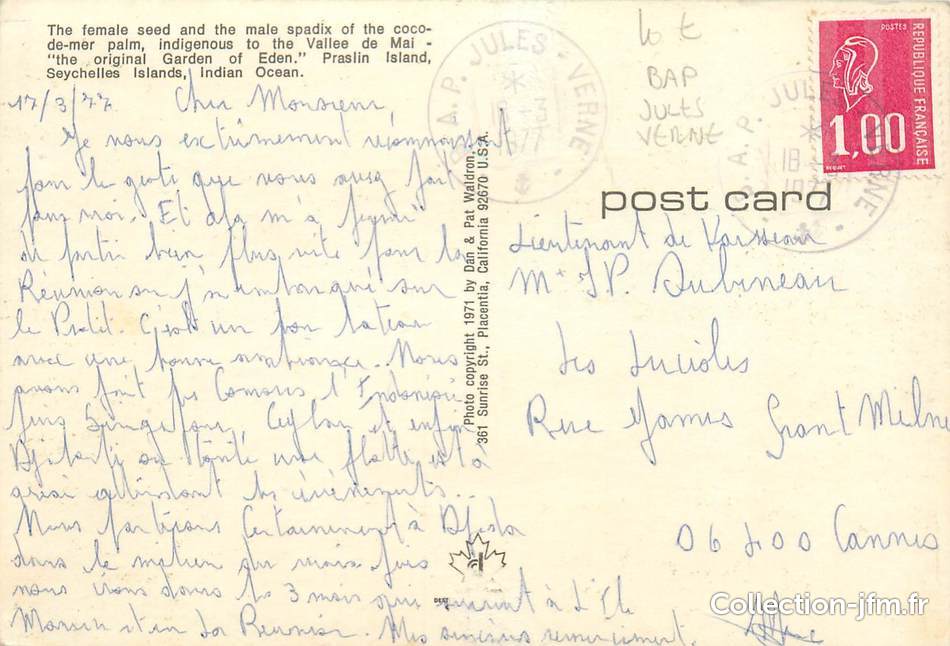 The female seed and the male spadix of the coco-
de-mer palm, indigenous to the Vallee de Mai -
"the original Garden of Eden." Praslin Island,
Seychelles Islands, Indian Ocean.
17/3/77 Cher Monsieur
Je vous extrêmement reconnaissant
pour le geste que vous avez fait
pour moi. Et cela m'a permis
de partir bien plus vite pour la
Réunion où j'ai embarqué sur
le C'est un bon bateau
avec une bonne ambiance. Nous
avons fait les Comores l'Indonésie
puis Singapour, Ceylan et enfin
Djibouti où toute une flotte est à
quai attendant les événements...
Nous partirons certainement à
dans le milieu du mois puis
nous irons dans les 3 mois qui suivent à l'Ile
Maurice et en La Réunion. Mes sincères remerciements.
Photo copyright 1971 by Dan & Pat Waldron,
361 Sunrise St., Placentia, California 92670 U.S.A.
DEXT
B.A.P. JULES-VERNE
18-3
1977
10 E
BAP
JULES
VERNE
POSTES
REPUBLIQUE FRANÇAISE
1,00
B.A.P. JULES VERNE
18
post card
Lieutenant de Vaisseau
Mr J.P. Aubineau
Les Lucioles
Rue James Grant Milne
06400 Cannes
Collection-jfm.fr